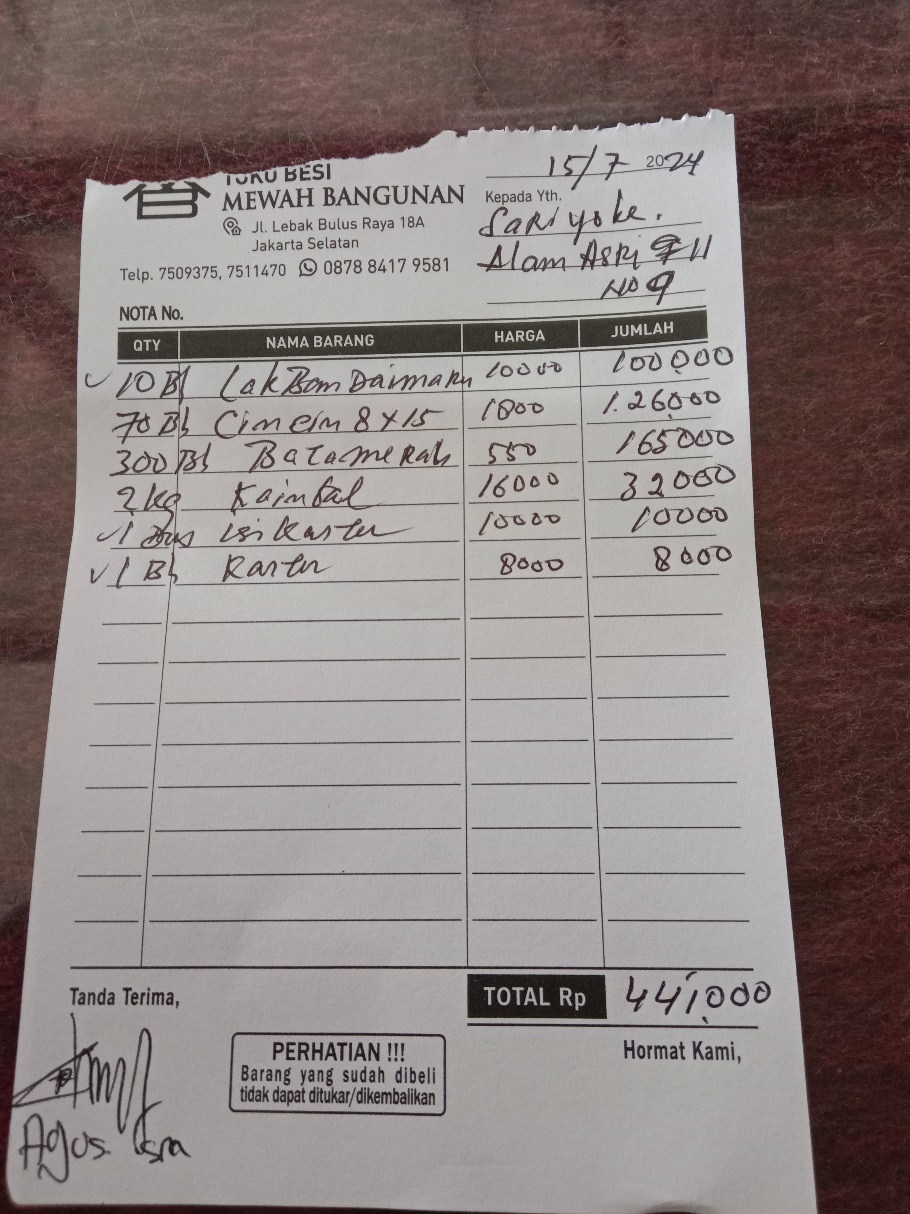 TOKO BESI
MEWAH BANGUNAN
Jl. Lebak Bulus Raya 18A
Jakarta Selatan
Telp. 7509375, 7511470 0878 8417 9581
15/7 2024
Kepada Yth.
Sariyoke.
Alam Asri 11
No 9
NOTA No.
QTY NAMA BARANG HARGA JUMLAH
10 Bh LakBan Daimaru 10000 100,000
70 Bh Cincin 8x15 1800 1.26,000
300 Bh Batamerah 550 165000
2 kg 16000 32000
1 Dus isi Karter 10000 10000
1 Bh Karter 8000 8000
TOTAL Rp 441,000
Tanda Terima,
Hormat Kami,
PERHATIAN !!!
Barang yang sudah dibeli
tidak dapat ditukar/dikembalikan
Agus